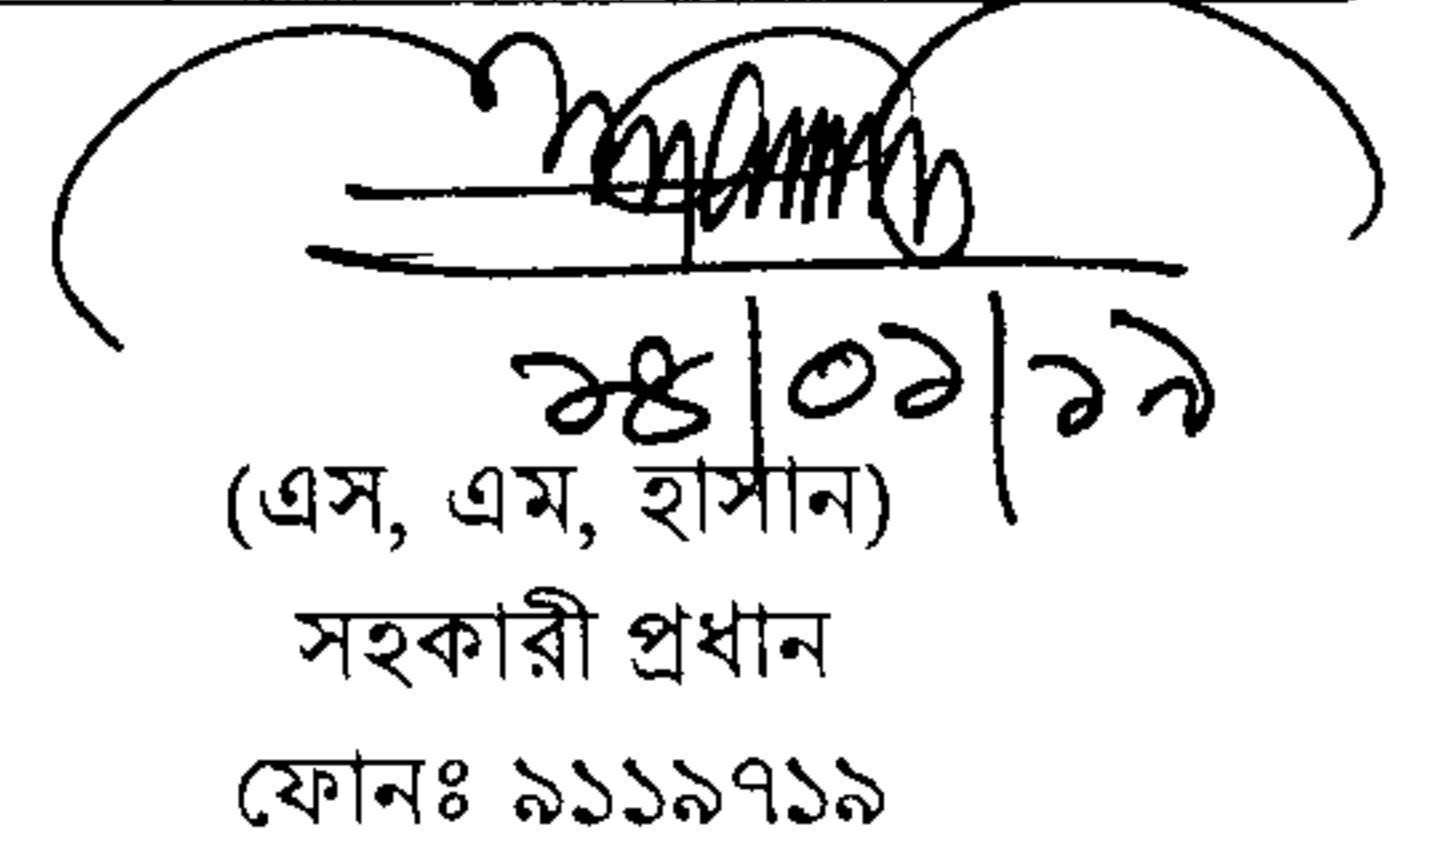 ১৪/০১/১৯
(এস, এম, হাসান)
সহকারী প্রধান
ফোনঃ ৯১১৯৭১৯